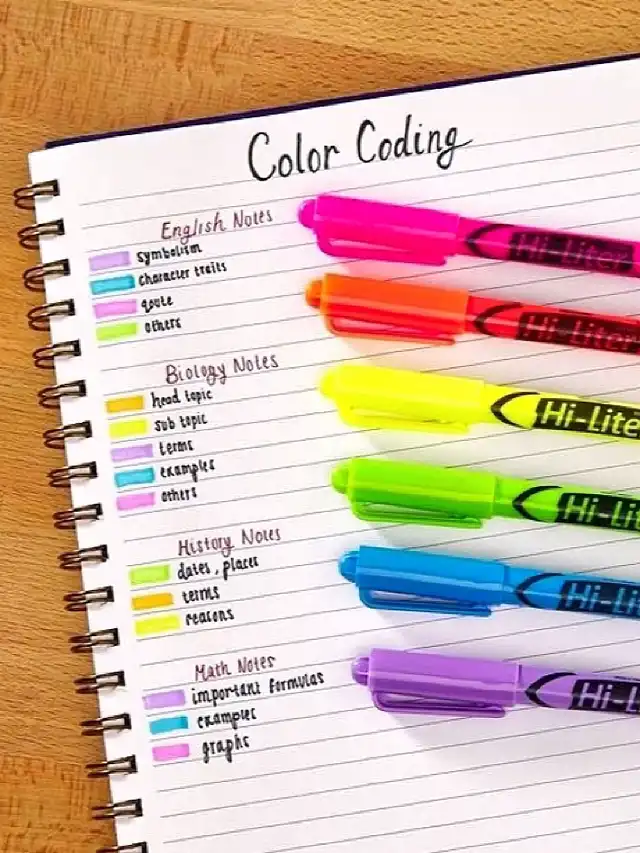 Color Coding
English Notes
symbolism
character traits
qoute
others
Biology Notes
head topic
sub topic
terms
examples
others
History Notes
dates, places
terms
reasons
Math Notes
important formulas
examples
graphs
Hi-Liter
Hi-Liter
Hi-Lite
Hi-Lit
Hi-Li
Hi-L